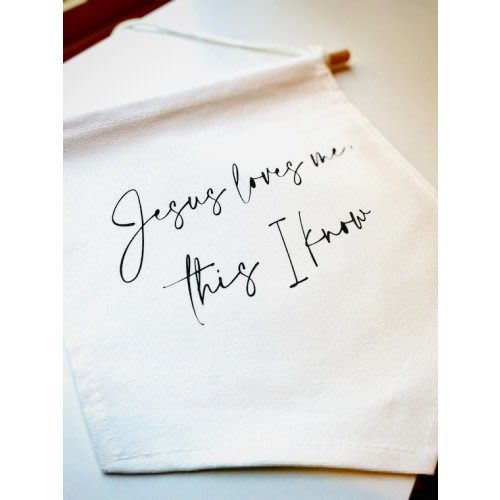 Jesus loves me,
this I know